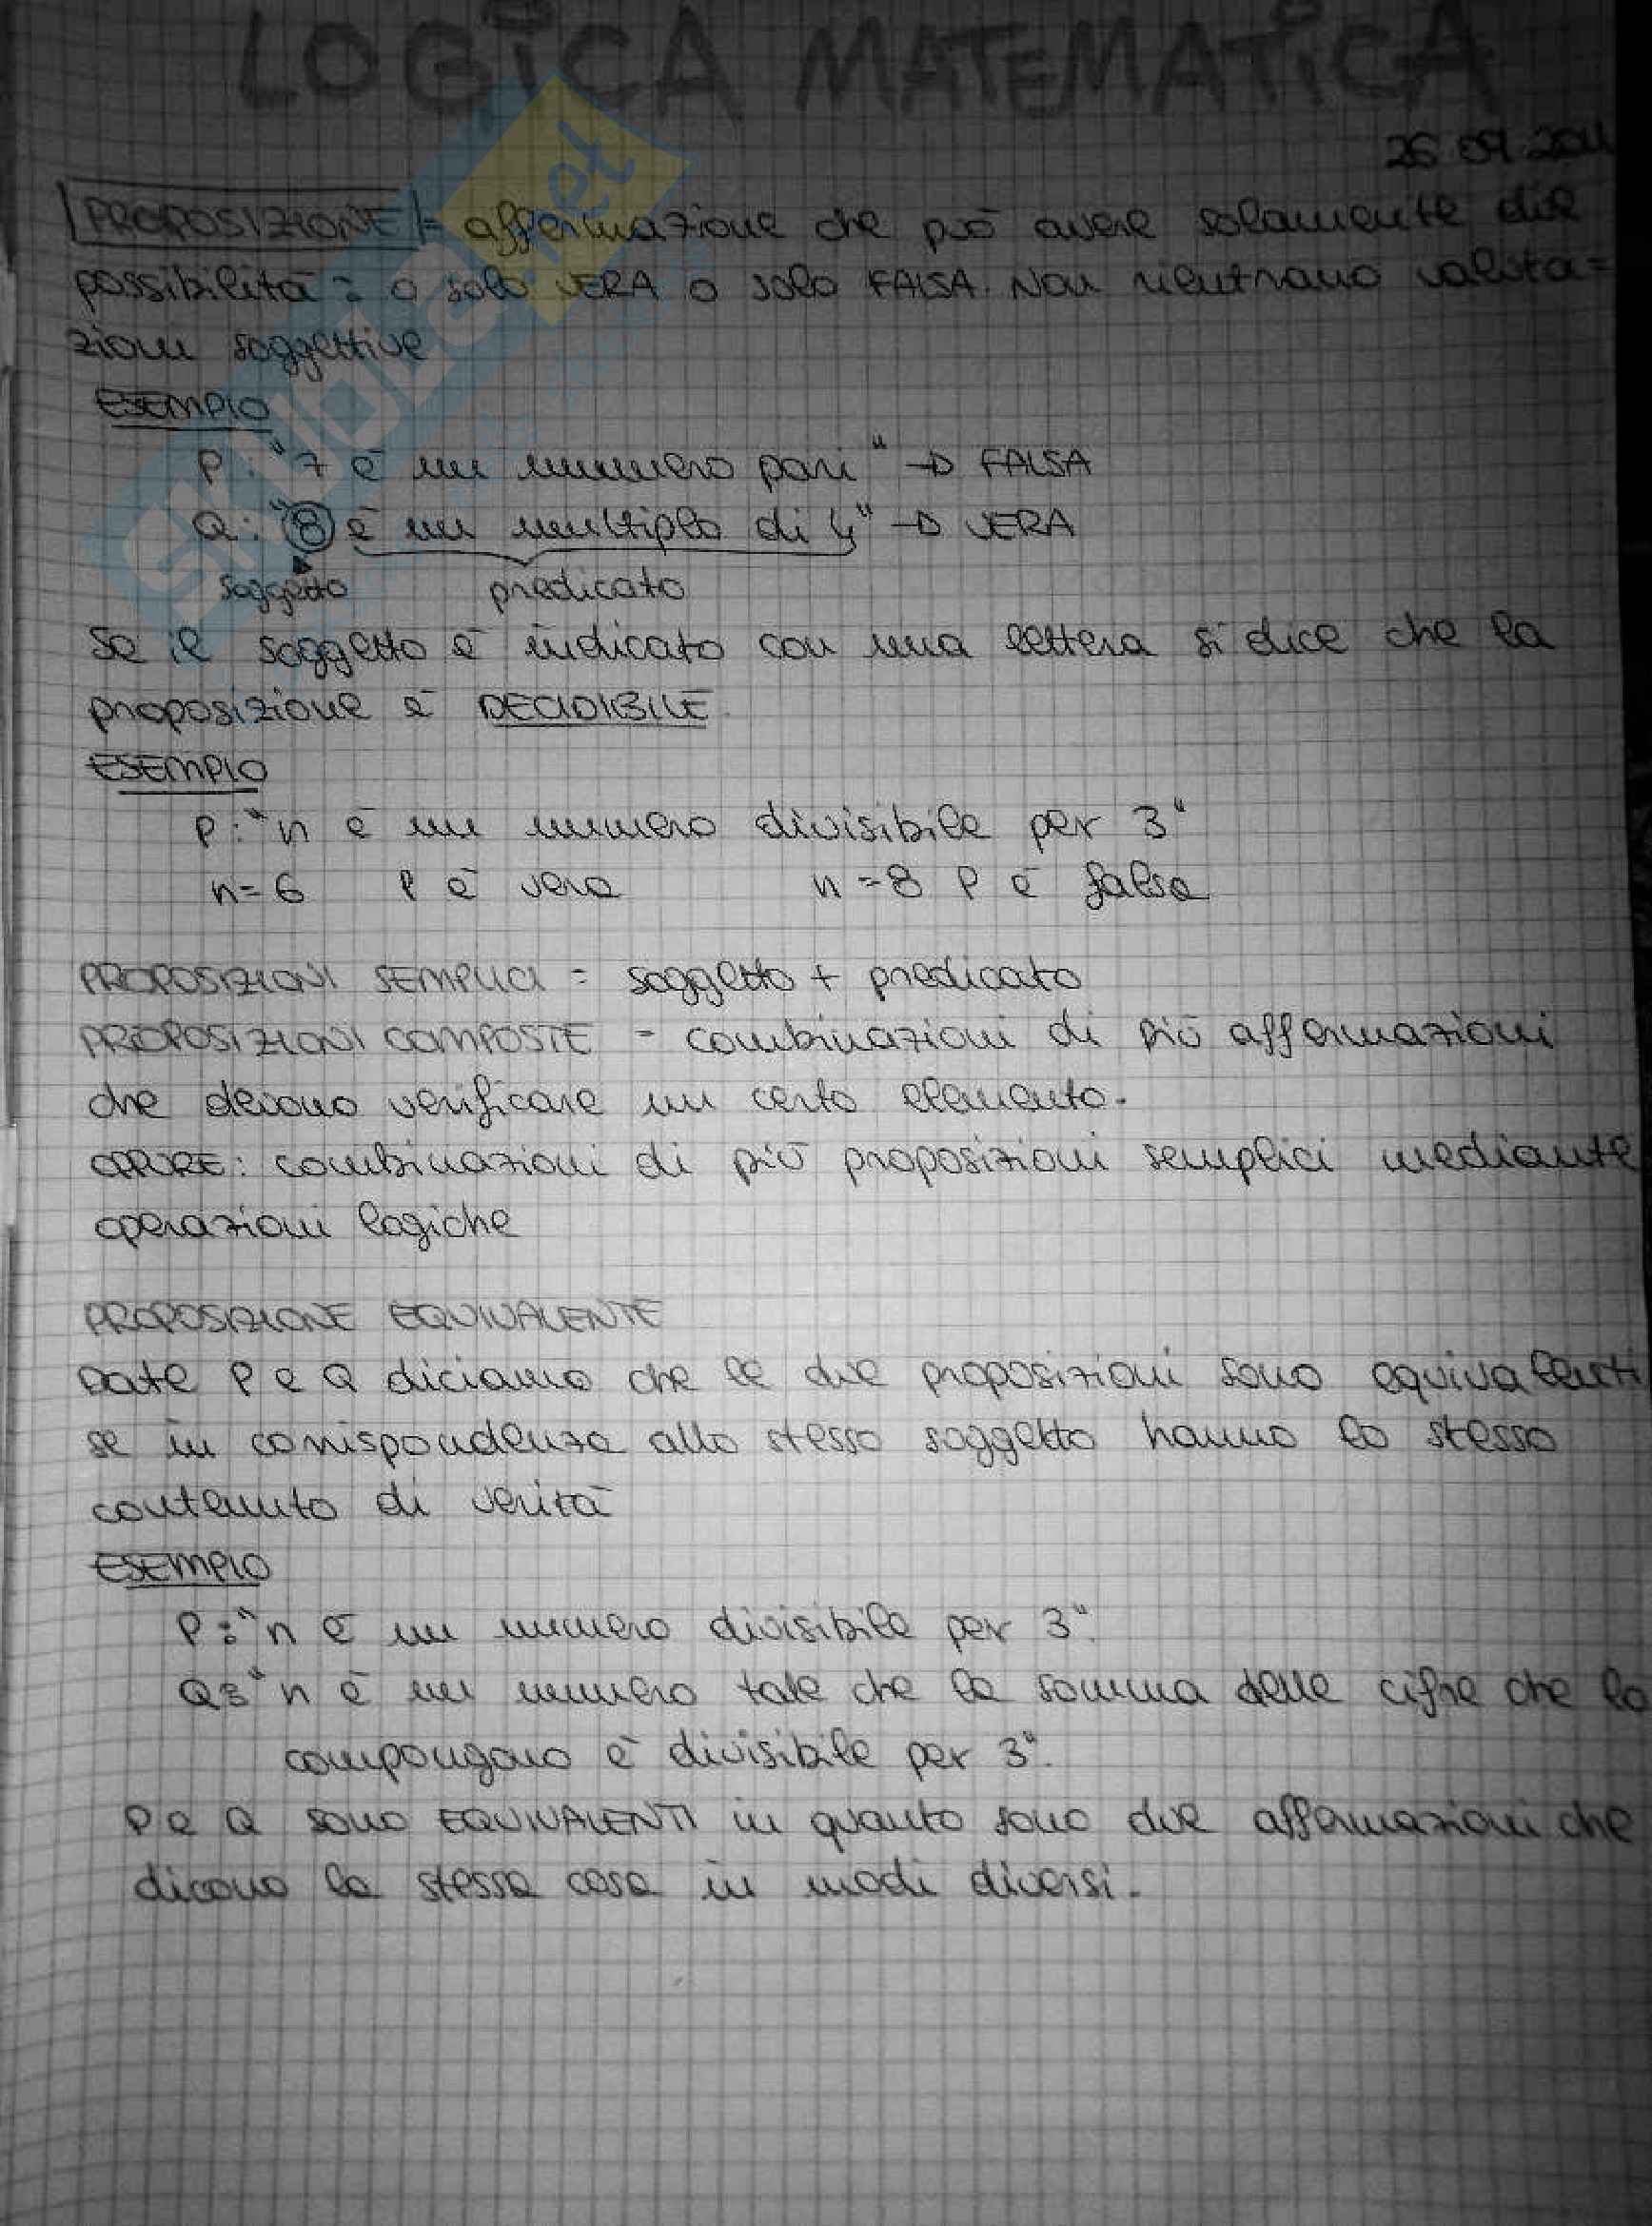 LOGICA MATEMATICA
26.09.2011
PROPOSIZIONE = affermazione che può avere solamente due
possibilità: o solo VERA o solo FALSA. Non rientrano valuta=
zioni soggettive
ESEMPIO
P: "7 è un numero pari" → FALSA
Q: "8 è un multiplo di 4" → VERA
soggetto predicato
Se il soggetto è indicato con una lettera si dice che la
proposizione è DECIDIBILE.
ESEMPIO
P: "n è un numero divisibile per 3"
n=6 P è vera n=8 P è falsa
PROPOSIZIONI SEMPLICI = soggetto + predicato
PROPOSIZIONI COMPOSTE = combinazioni di più affermazioni
che devono verificare un certo elemento.
OPPURE: combinazioni di più proposizioni semplici mediante
operazioni logiche
PROPOSIZIONE EQUIVALENTE
Date P e Q diciamo che le due proposizioni sono equivalenti
se in corrispondenza allo stesso soggetto hanno lo stesso
contenuto di verità
ESEMPIO
P: "n è un numero divisibile per 3".
Q: "n è un numero tale che la somma delle cifre che lo
compongono è divisibile per 3".
P e Q sono EQUIVALENTI in quanto sono due affermazioni che
dicono la stessa cosa in modi diversi.
skuola.net